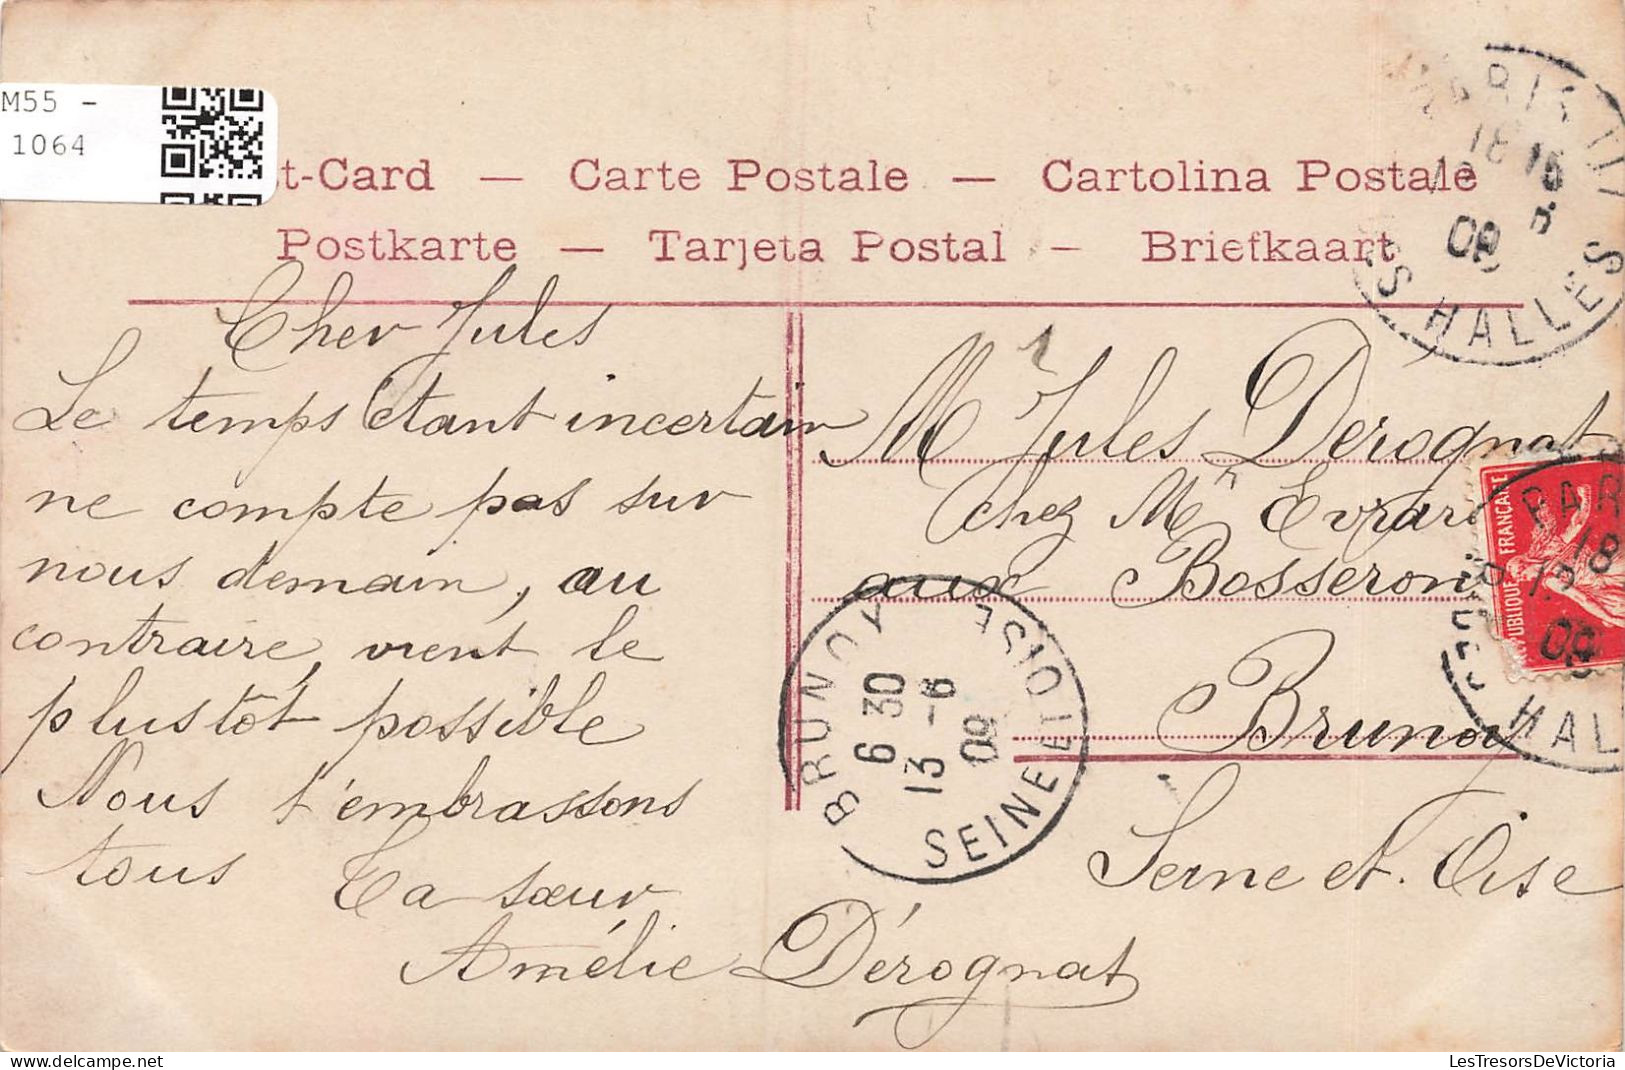 M55 -
1064
t-Card — Carte Postale — Cartolina Postale
Postkarte — Tarjeta Postal — Briefkaart
Cher Jules
Le temps étant incertain
ne compte pas sur
nous demain, au
contraire, vient le
plustôt possible
Nous t'embrassons
tous Ta sœur
Amélie Dérognat
1
M Jules Derognat
chez Mr Evrar
aux Bosseron
Brunoy
Seine et Oise
PARIS III
18 15
09
S HALLES
RÉPUBLIQUE FRANÇAISE
PAR
18
09
HAL
BRUNOY
6 30
13 - 6
09
SEINE ET OISE
LesTresorsDeVictoria